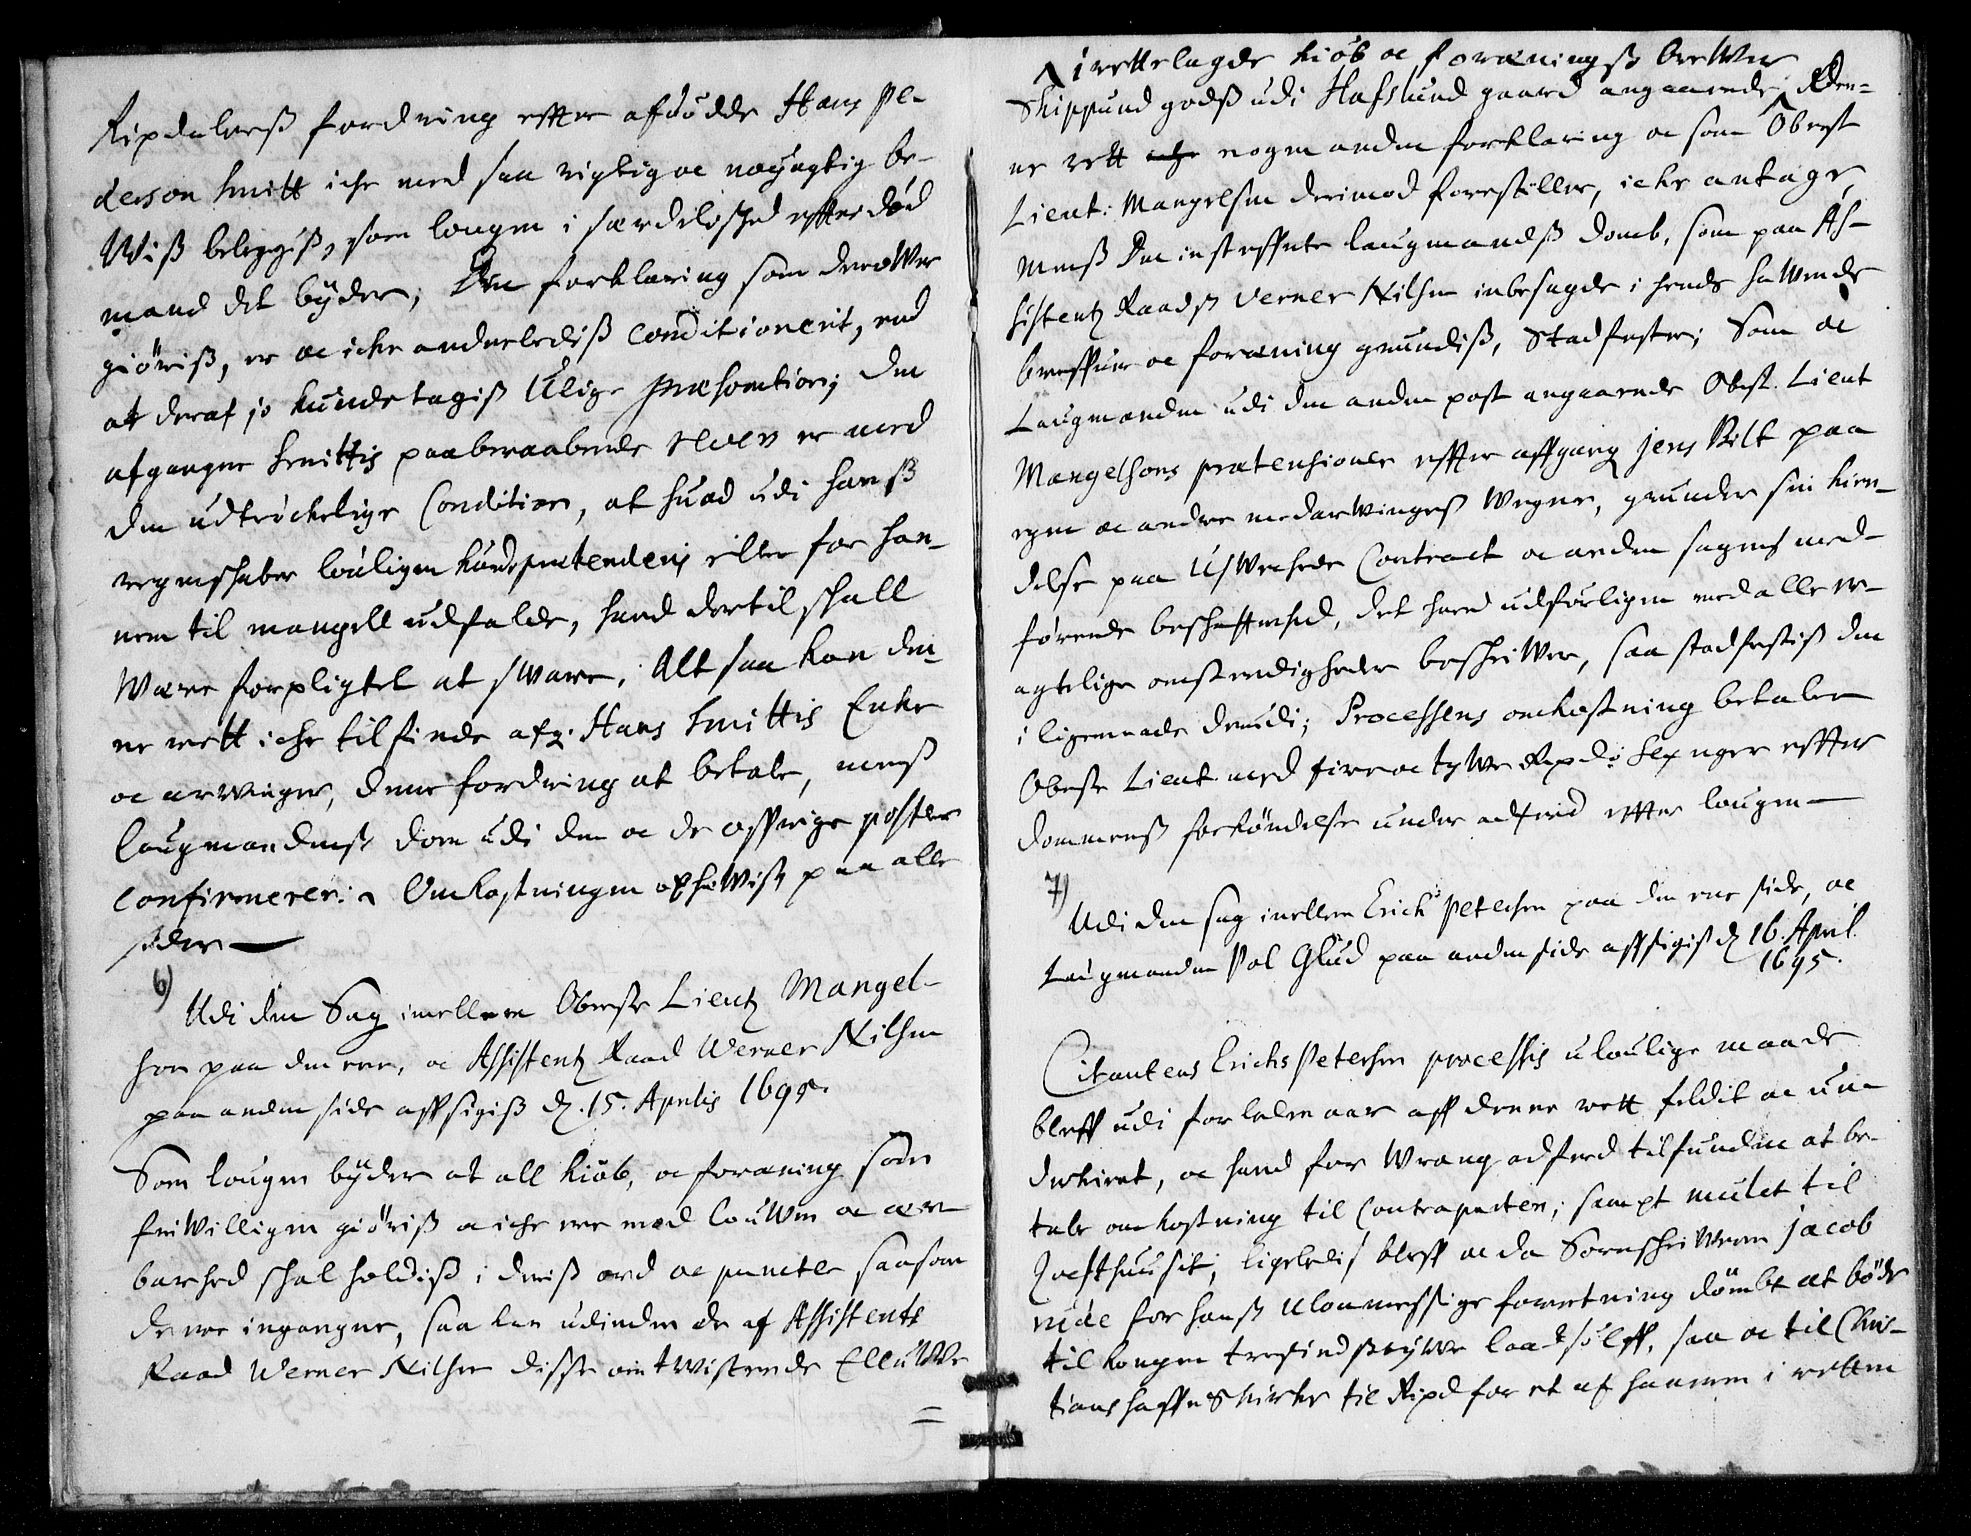 Rixdalerß fordring effter afdödde Hans Pe-
derson Smitt iche med saa rigtig oc nöyagtig be-
Wiß beleggiß, som lougen i særdelished effter död
mand det byder, Den forklaring som derofWer
giöriß, er oc iche anderlediß conditionerit, end
at deraf jo kunde tagiß Ulige præsomtion; den
afgangne Smittis paaberaabende revers er med
den udtröchelige Condition, at huad udi hanß
regenschaber louligen kunde prætenderis eller for han-
nem til mangell udfalde, hand dertil schall
Were forpligtet at sWare, Alt saa kan den-
ne rett iche tilfinde afg: Hans Smittis Enke
oc arvinger, denne fordring at betale, menß
laugmandenß dom udi den oc de öffrige poster
confirmerer: Omkostningen ophæfWis paa alle
sider
6)
Udi den Sag imellem Oberste Lieut Mangel-
son paa den ene, oc Assistentz Raad Werner Nilsen
paa anden side affsigiß d. 15. Aprilis 1695.
Som lougen byder at all kiöb, oc foræning som
friWilligen giöriß oc iche ere mod louWen oc ær-
barhed schal holdiß i deriß ord oc puncter saasom
de ere ingangne, saa kan udinden de af Assistents
Raad Werner Nilsen disse omtWistende Elluffve
irettelagde kiöb oc foræningß breffWer
Skippund godß udi Hafslund gaard angaaende, Den-
ne rett nogen anden forklaring oc som Oberst
Lieut: Mangelsen derimod forestiller, iche antage,
menß Den instefnte laugmandß domb, som paa As-
sistentz Raadß Verner Nilsen inbesagde i hende hafWende
breffuer oc foræning grundiß, Stadfester; Som oc
Laugmanden udi den anden post angaaende Obrst. Lieut
Mangelsons prætensioner effter affgang Jens Bilt paa
egne oc andre medarWingeß Wegne, grunder sin kien-
delse paa UpWeisede Contract oc anden sagens med-
förende beschaffenhed, det hand udförligen med alle er-
agtelige omstendigheder beschriWer, saa stadfestiß den
i ligemaade derudi; Processens omkostning betaler
Oberste Lieut med fire oc tyWe Rixdr Sex uger effter
dommenß forkyndelse under adferd effter lougen
7)
Udi den sag imellem Erich Petersen paa den ene side, oc
Laugmanden Pol Glud paa anden side affsigiß d. 16. April
1695.
Citantens Erichs Petersen processis ulovlige maade
bleff udi forledene aar aff denne rett feldit oc un-
derkient, oc hand for Wrang adferd tilfunden at be-
tale omkostning til Contraparten, sampt mulct til
Zuchthuusit, ligeledis bleff oc da Sorenschrifveren Jacob
rude for hanß Uloumessige forretning dömbt at böde
til kongen tresindstyWe lod sölff, saa oc til Chris-
tians haffns kirke til Rixd for et af hannem i retten